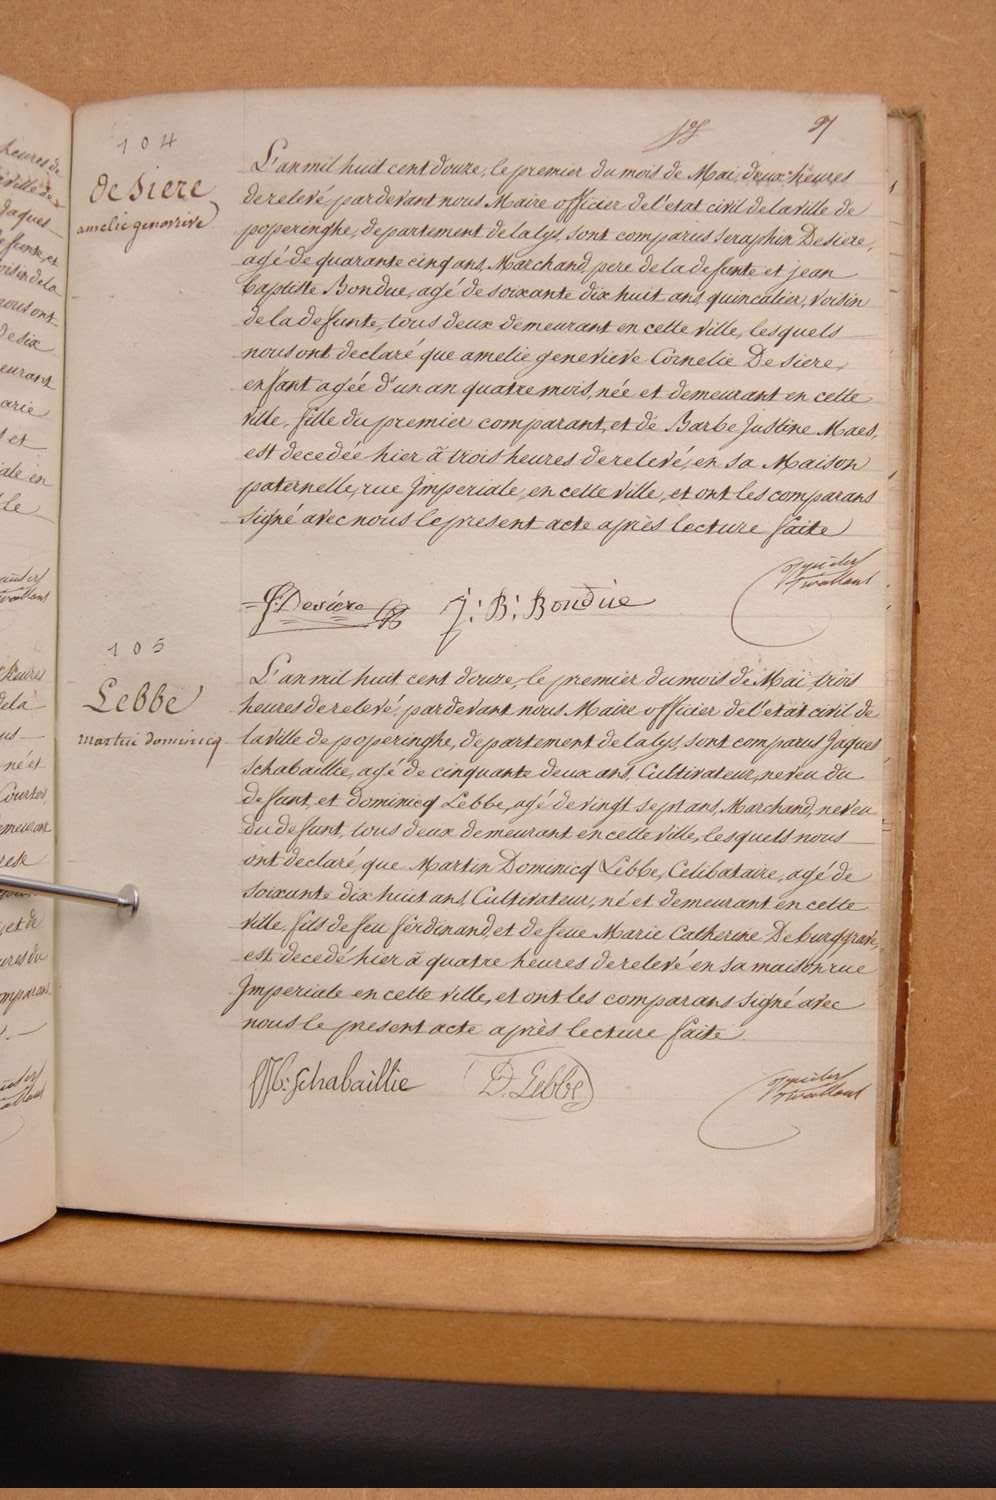 104
de Siere
amelie genevive
L'an mil huit cent douze, le premier du mois de Mai, deux heures
de relevé, pardevant nous Maire officier de l'etat civil de la ville de
poperinghe, departement de la lys, sont comparus Seraphin De siere,
agé de quarante cinq ans, Marchand, pere de la defunte et jean
Baptiste Bondue, agé de soixante dix huit ans, quincalier, voisin
de la defunte, tous deux demeurant en cette ville, lesquels
nous ont declaré que amelie genevieve Cornelie De siere,
enfant agée d'un an quatre mois, née et demeurant en cette
ville, fille du premier comparant, et de Barbe Justine Maes,
est decedée hier à trois heures de relevé, en sa Maison
paternelle, rue Imperiale, en cette ville, et ont les comparans
signé avec nous le present acte après lecture faite
S: Desiére J: B: Bondue
105
Lebbe
martin dominicq
L'an mil huit cent douze, le premier du mois de Mai trois
heures de relevé, pardevant nous Maire officier de l'etat civil de
la ville de poperinghe, departement de la lys, sont comparus Jaques
Schabaillie, agé de cinquante deux ans, Cultivateur, neveu du
defunt, et dominicq Lebbe, agé de vingt sept ans, Marchand, neveu
du defunt, tous deux demeurant en cette ville, lesquels nous
ont declaré que Martin Dominicq Lebbe, Celibataire, agé de
soixante dix huit ans, Cultivateur, né et demeurant en cette
ville, fils de feu ferdinand, et de feue Marie Catherine De burggrave,
est decedé hier à quatre heures de relevé en sa maison rue
Imperiale en cette ville, et ont les comparans signé avec
nous le present acte après lecture faite
Schabaillie D. Lebbe